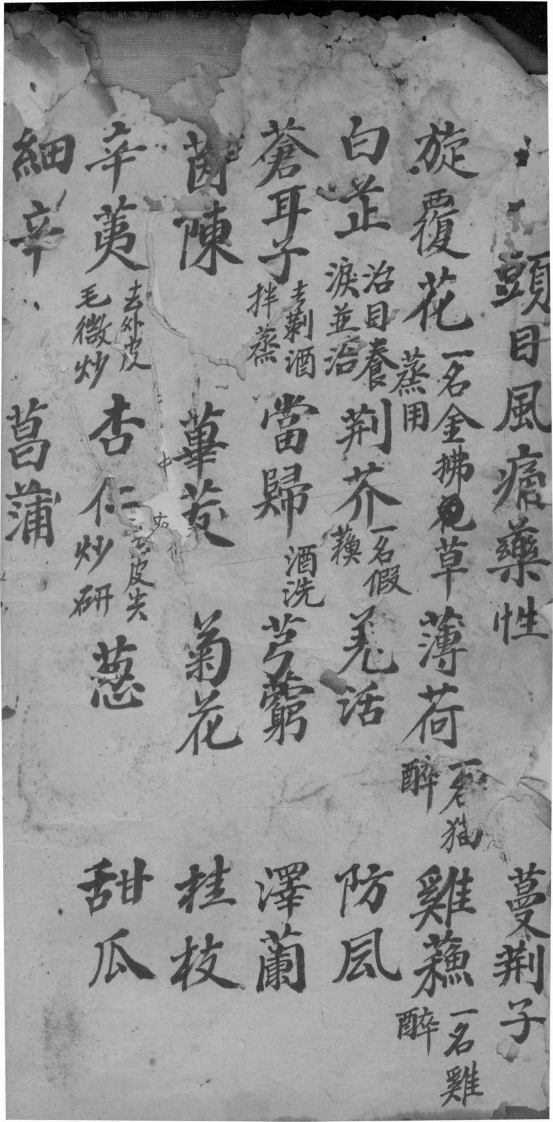 頭目風瘡藥性 蔓荆子
旋覆花 一名金拂草 蒸用 薄荷 一名猫醉 雞蘓 一名雞醉
白芷 治目養淚並治 荆芥 一名假蘓 羌活 防風
蒼耳子 去刺酒拌蒸 當歸 酒洗 芎藭 澤蘭
茵陳 蓽茇 菊花 桂枝
辛荑 去外皮毛微炒 杏仁 去皮尖炒研 葱 甜瓜
細辛 菖蒲